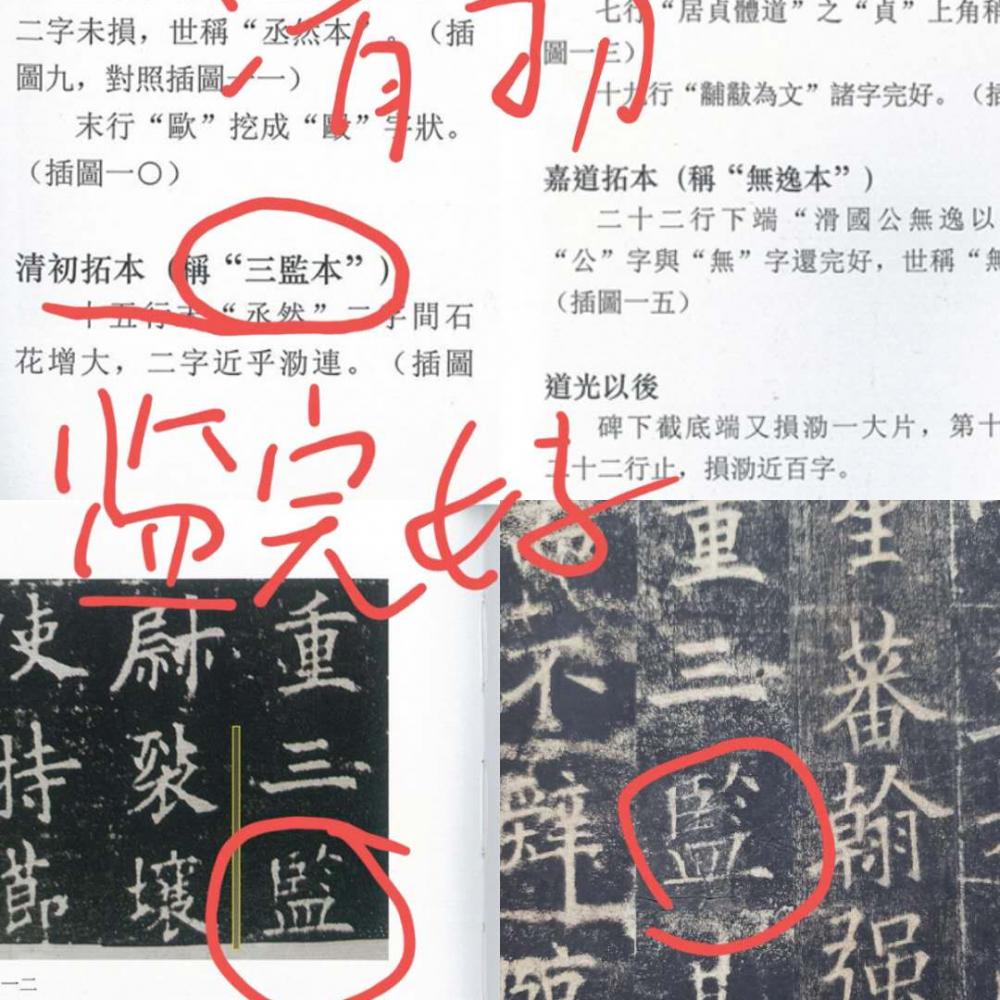 二字未損，世稱“丞然本”。（插
圖九，對照插圖一一）
末行“歐”挖成“毆”字狀。
（插圖一〇）
清初拓本（稱“三監本”）
十五行末“丞然”二字間石
花增大，二字近乎泐連。（插圖
七行“居貞體道”之“貞”上角稍
圖一三）
十九行“黼黻為文”諸字完好。（插
嘉道拓本（稱“無逸本”）
二十二行下端“滑國公無逸以
“公”字與“無”字還完好，世稱“無
（插圖一五）
道光以後
碑下截底端又損泐一大片，第十
二十二行止，損泐近百字。
清初
监完好
重三監
尉褧壤
使持節
一二
生蕃翰强
重三監
不辭